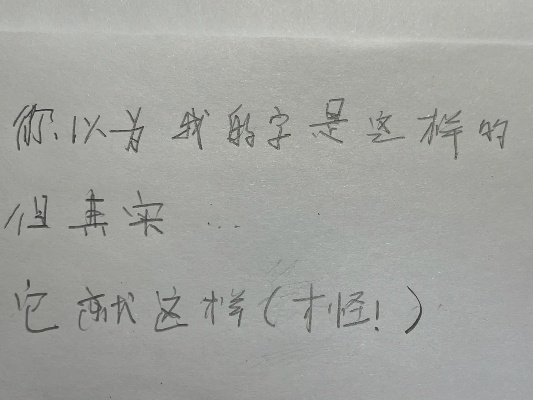 你以为我的字是这样的
但其实...
它就这样(才怪!)